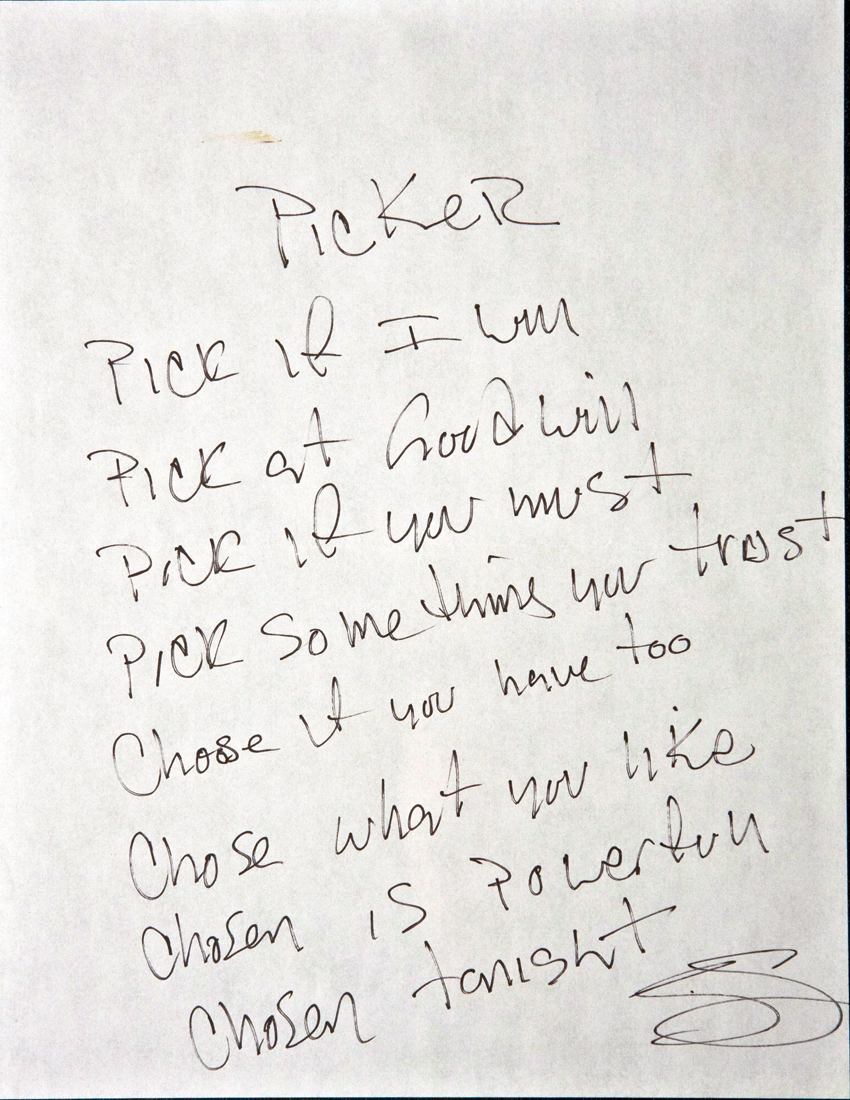 PICKeR
PICK If I will
PICK at Goodwill
PICK If you must
PICK Something you trust
Choose if you have too
Chose what you like
Chosen is Powerfull
Chosen tonight